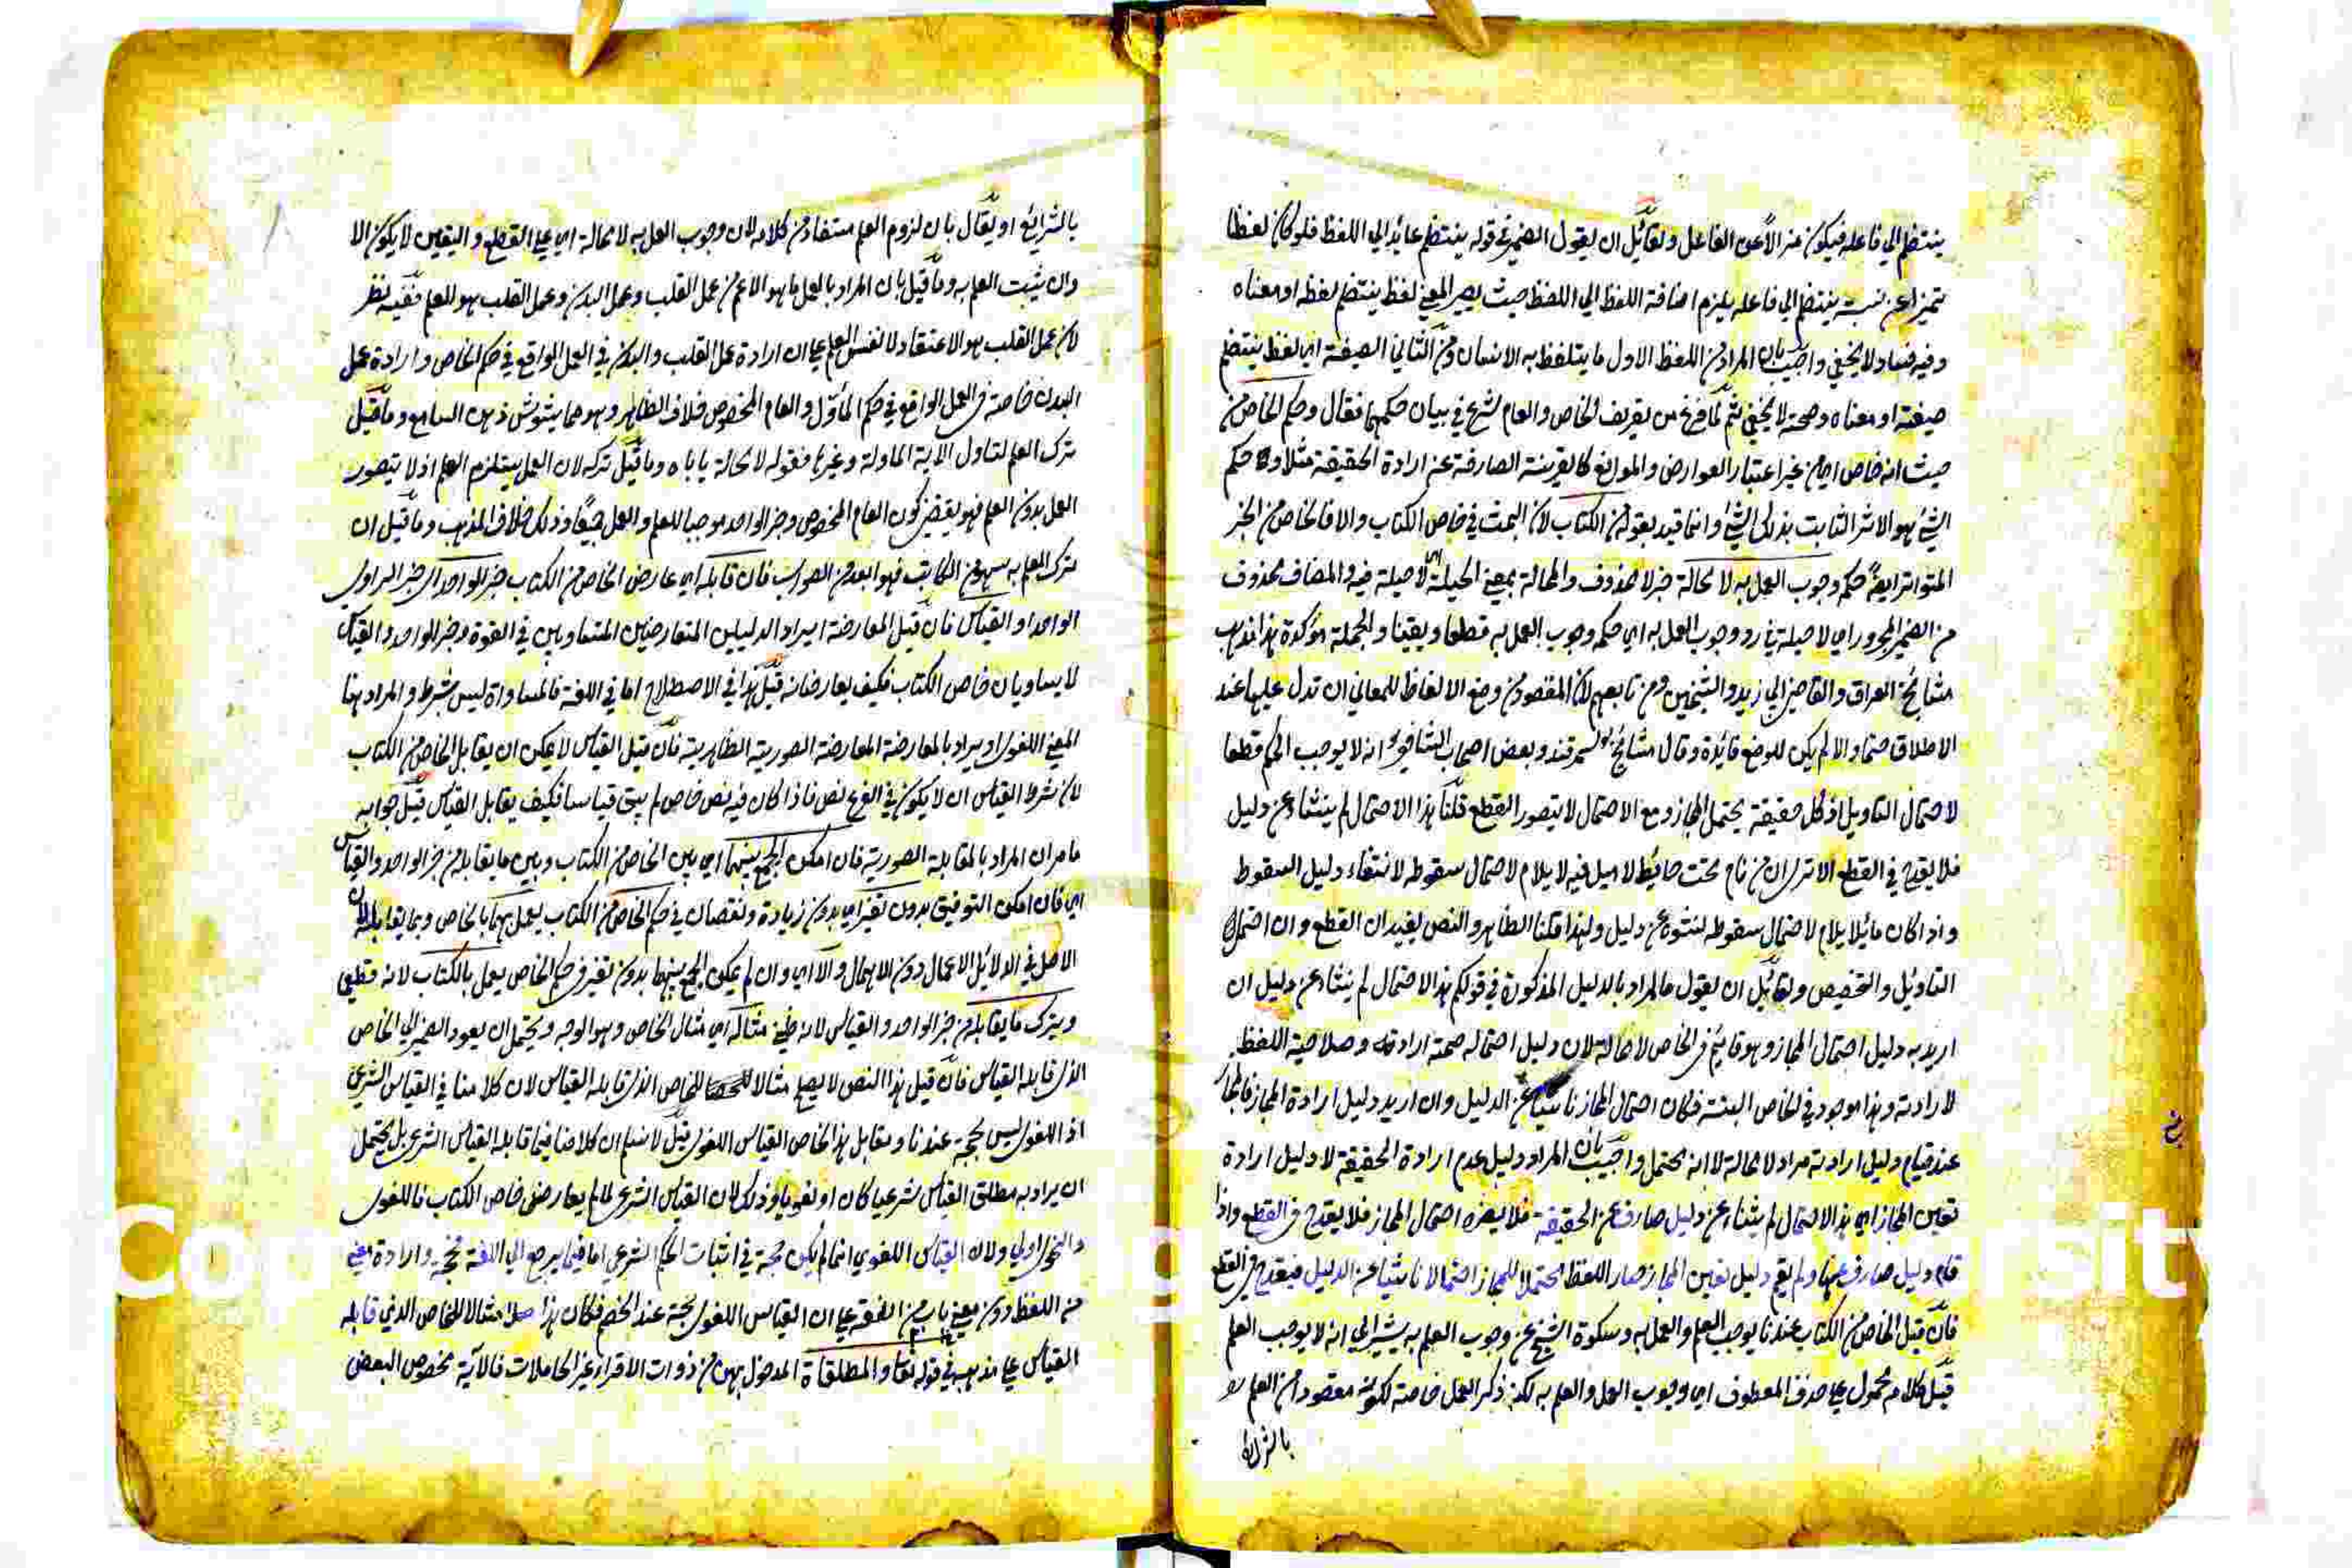 ينتظم الي فاعله فيكون من الأعم الفاعل ولقائل ان يقول الضمير في قوله ينتظم عايد الي اللفظ فلو كان لفظا
تميزا عن نسبة ينتظم الي فاعله يلزم اضافة اللفظ الي اللفظ حيث يصير المعني لفظ ينتظم لفظه او معناه
وفيه فساد لا يخفي واجيب بان المراد من اللفظ الاول ما يتلفظ به الانسان ومن الثاني الصيغة اي لفظ ينتظم
صيغته او معناه وصحته لا يخفي ثم لما فرغ من تعريف الخاص والعام شرع في بيان حكمهما فقال وحكم الخاص من
حيث انه خاص اي من غير اعتبار العوارض والموانع كالقرينة الصارفة عن ارادة الحقيقة مثلا وحكم
الشئ هو الاثر الثابت بذلك الشئ وانما قيد بقوله من الكتاب لان البحث في خاص الكتاب والا فالخاص من الخبر
المتواتر ايضا حكمه وجوب العمل به لا محالة خبر لا محذوف والمحالة بمعني الحيلة اي لا حيلة فيه والمضاف محذوف
من الضمير المجرور اي لا حيلة في رد وجوب العمل به اي حكمه وجوب العمل به قطعا ويقينا والجملة مؤكدة هذا مذهب
مشائخ العراق والقاضي ابي زيد والشيخين ومن تابعهم لان المقصود من وضع الالفاظ للمعاني ان تدل عليها عند
الاطلاق حتما والا لم يكن للوضع فائدة وقال مشائخ سمرقند وبعض اصحاب الشافعي انه لا يوجب الحكم قطعا
لاحتمال التاويل اذ كل حقيقة يحتمل المجاز ومع الاحتمال لا يتصور القطع قلنا هذا الاحتمال لم ينشاء عن دليل
فلا يقدح في القطع الا تري ان من نام تحت حائط لا ميل فيه لا يلام لاحتمال سقوطه لانتفاء دليل السقوط
واذا كان مائلا يلام لاحتمال سقوطه لنشوه عن دليل ولهذا قلنا الظاهر والنص يفيدان القطع وان احتمل
التاويل والتخصيص ولقائل ان يقول ما المراد بالدليل المذكور في قولكم هذا الاحتمال لم ينشاء عن دليل ان
اريد به دليل احتمال المجاز وهو قائم في الخاص لا محالة لان دليل احتماله صحة ارادته وصلاحية اللفظ
لارادته وهذا موجود في الخاص البتة فكان احتمال المجاز ناشيا عن الدليل وان اريد دليل ارادة المجاز فالمجاز
عند قيام دليل ارادته مراد لا محالة لا انه يحتمل واجيب بان المراد دليل عدم ارادة الحقيقة لا دليل ارادة
تعين المجاز اي هذا الاحتمال لم ينشاء عن دليل صارف عن الحقيقة فلا يضره احتمال المجاز فلا يقدح في القطع واذا
قام دليل صارف عنها ولم يقم دليل تعين المجاز صار اللفظ محتملا للمجاز احتمالا ناشيا عن الدليل فيقدح في القطع
فان قيل الخاص من الكتاب عندنا يوجب العلم والعمل به وسكوة الشيخ عن وجوب العلم به يشير الي انه لا يوجب العلم
قيل كلامه محمول علي حذف المعطوف اي وجوب العمل والعلم به لكنه ذكر العمل خاصة لكونه مقصودا من العلم
بالشرائع
بالشرائع او يقال بان لزوم العلم مستفاد من كلامه لان وجوب العمل به لا محالة اي علي القطع واليقين لا يكون الا
وان يثبت العلم به وما قيل بان المراد بالعمل ما هو الاعم من عمل القلب وعمل البدن وعمل القلب هو العلم ففيه نظر
لان عمل القلب هو الاعتقاد لا نفس العلم علي ان ارادة عمل القلب والبدن في العمل الواقع في حكم الخاص وارادة عمل
البدن خاصة في العمل الواقع في حكم المأول والعام المخصوص خلاف الظاهر وهو مما يشوش ذهن السامع وما قيل
ترك العلم لتناول الآية الماولة وغيرها فقوله لا محالة ياباه وما قيل تركه لان العمل يستلزم العلم اذ لا يتصور
العمل بدون العلم فهو يقتضي كون العام المخصوص وخبر الواحد موجبا للعلم والعمل جميعا وذلك خلاف المذهب وما قيل ان
ترك العلم به سهو من الكاتب فهو ابعد من الصواب فان قابله اي عارض الخاص من الكتاب خبر الواحد اي خبر الراوي
الواحد او القياس فان قيل المعارضة ايراد الدليلين المتعارضين المتساويين في القوة وخبر الواحد والقياس
لا يساويان خاص الكتاب فكيف يعارضانه قيل هذا في الاصطلاح اما في اللغة فالمساواة ليس بشرط والمراد هنا
المعني اللغوي او يراد بالمعارضة المعارضة الصورية الظاهرية فان قيل القياس لا يمكن ان يقابل الخاص من الكتاب
لان شرط القياس ان لا يكون في الفرع نص فاذا كان فيه نص خاص لم يبق قياسا فكيف يقابل القياس قيل جوابه
ما مر ان المراد بالمقابلة الصورية فان امكن الجمع بينهما اي بين الخاص من الكتاب وبين ما يقابله من خبر الواحد والقياس
اي فان امكن التوفيق بدون تغير اي بدون زيادة ونقصان في حكم الخاص من الكتاب يعمل بهما بالخاص وبما يقابله لان
الاصل في الدلائل الاعمال دون الاهمال والا اي وان لم يمكن الجمع بينهما بدون تغير في حكم الخاص يعمل بالكتاب لانه قطعي
ويترك ما يقابله من خبر الواحد والقياس لانه ظني مثاله اي مثال الخاص وهو الوجه ويحتمل ان يعود الضمير الي الخاص
الذي قابله القياس فان قيل هذا النص لا يصلح مثالا للخاص الذي قابله القياس لان كلامنا في القياس الشرعي
اذ اللغوي ليس بحجة عندنا ومقابل هذا الخاص القياس اللغوي قيل لا نسلم ان كلامنا فيما قابله القياس الشرعي بل يحتمل
ان يراد به مطلق القياس شرعيا كان او لغويا وذلك لان القياس الشرعي لما لم يعارض خاص الكتاب فاللغوي
والنحوي اولي ولان القياس اللغوي انما لم يكن حجة في اثبات الحكم الشرعي اما فيما يرجع الي اللغة فحجة وارادة معني
من اللفظ دون معني باب من اللغة علي ان القياس اللغوي حجة عند الخصم فكان هذا مثالا للخاص الذي قابله
القياس علي مذهبه في قوله تعالي والمطلقاة المدخول بهن من ذوات الاقراء غير الحاملات فالآية مخصوص البعض